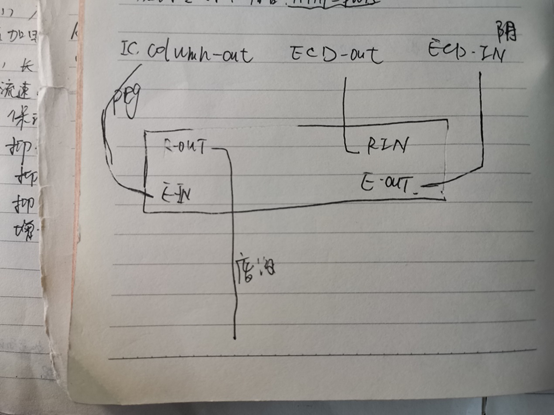 阴
IC Column-out ECD-out ECD-IN
R-OUT RIN
E-IN E-OUT
废液
加
长
流速
保
抑
抑
抑
增